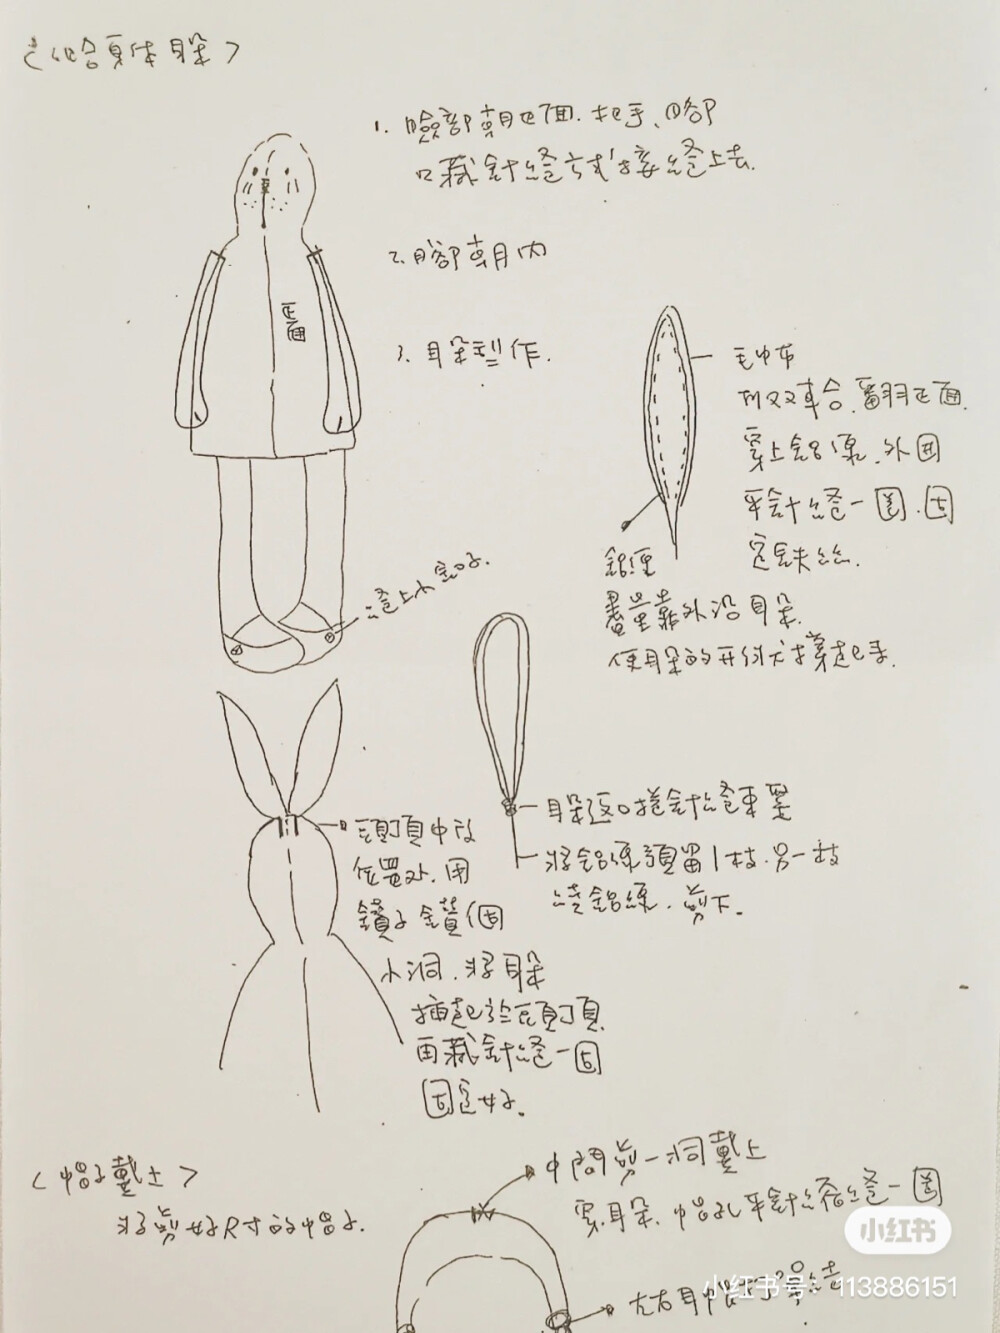 1. 臉部朝正面.把手、腳
口藏針縫方式接縫上去.
2.腳朝內
正面
3.耳朵製作.
毛巾布
車合.翻正面.
穿上鋁線.外圍
平針縫一圈.固
定鐵絲.
鋁線
儘量靠外沿耳朵.
縫上小釦子.
耳朵返口捲針縫束緊
將鋁線預留1枝.另一枝
繞鋁線.剪下.
頭頂中
位置处.用
鑽子鑽個
小洞.將耳朵
插起於頭頂.
再藏針縫一圈
固定好.
<帽子戴上>
將剪好尺寸的帽子.
中間剪一洞戴上
耳朵.帽孔平針縫一圈
左右耳
小红书
小红书号:113886151